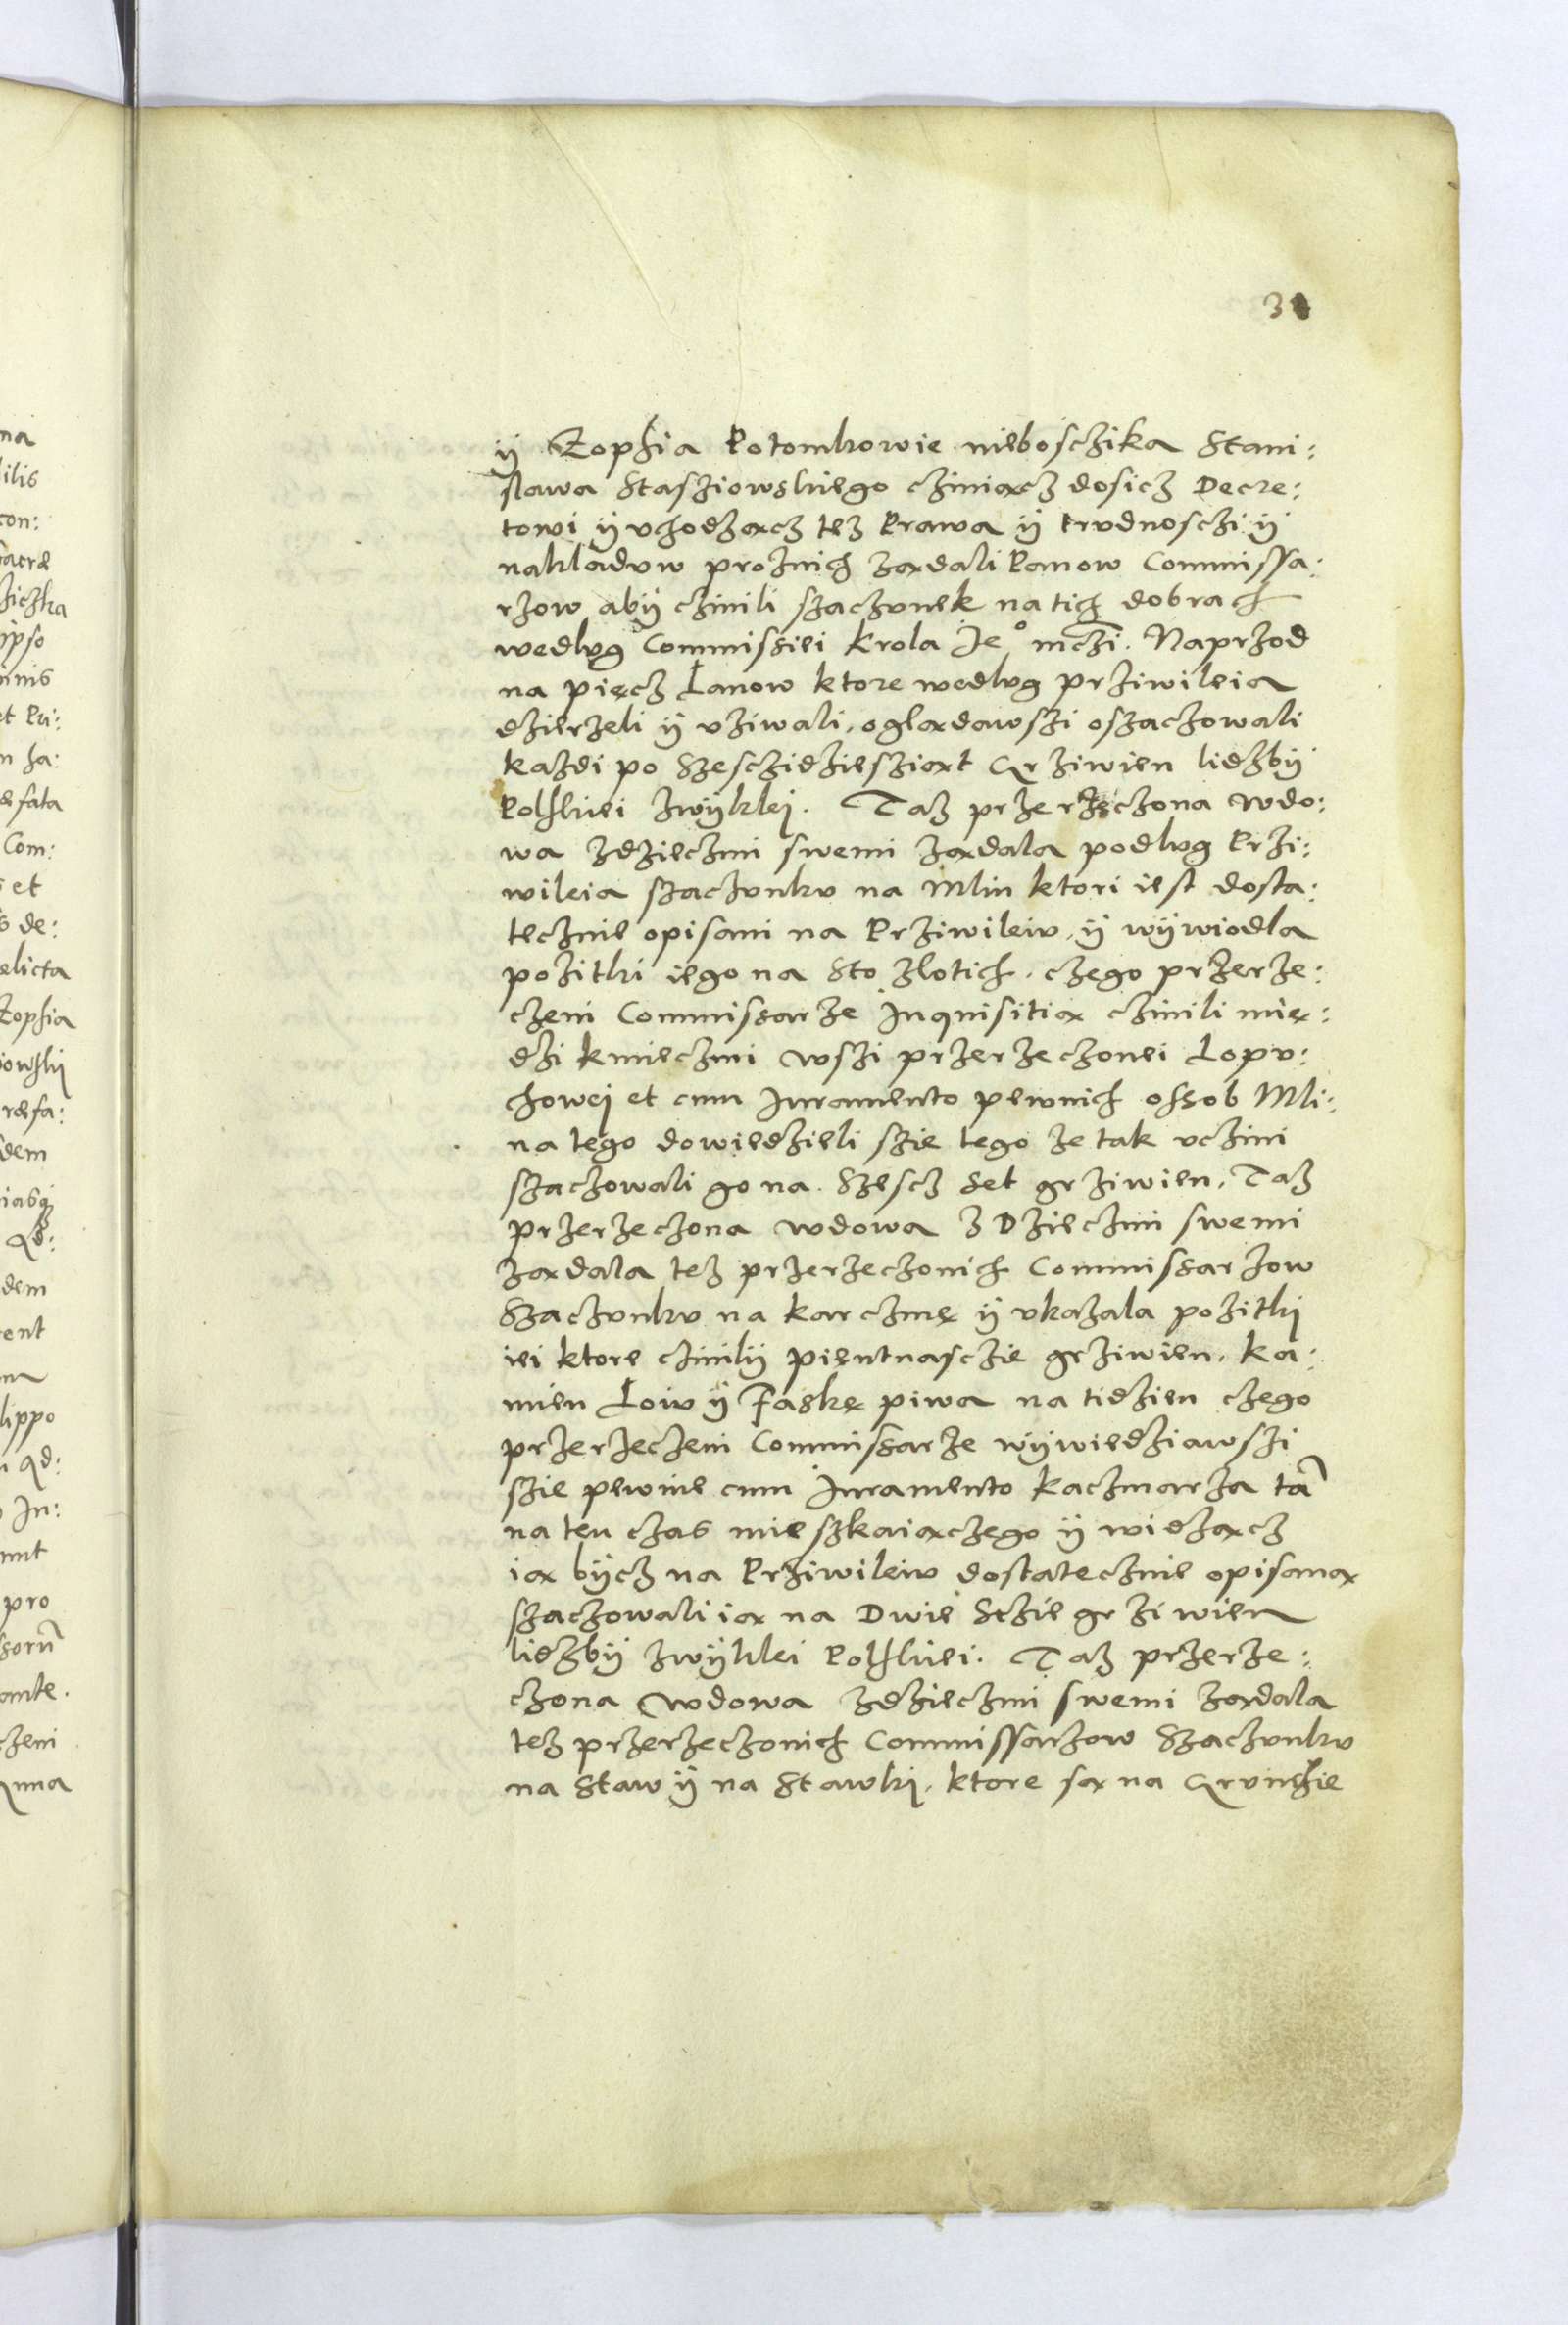 na
ilis
con:
acrae
ziczka
ipso
nnis
et Pri:
m ha:
efata
Com:
et
s de:
elicta
Zophia
iowskij
raefa:
dem
dem
ent
lippo
In:
pro
amte.
czeni
Anna
3
ÿ Zophia Potomkowie nieboscżika Stani:
slawa Stasziowskiego cziniącz dosicz Decre:
towi ÿ vchodżącz tez Prawa ÿ trudnosczi ÿ
nakladow proznich żądali Panow Commissa:
rzow abÿ czinili szaczunek na tich dobrach
wedlug Commissiei Krola Je° mczi. Naprzod
na pięcz Łanow ktore wedlug prziwileia
dzierzeli ÿ vziwali, oglądawszi oszaczowali
kazdi po Szesczidziesziąt Grziwien lidzbÿ
Polskiei zwÿklej. Taz przerzeczona wdo:
wa zdzieczmi swemi żądala podlug Przi:
wileia szaczunku na Mlin ktori iest dosta:
tecznie opisani na Prziwileiu, ÿ wÿwiodla
pozitki iego na Sto zlotich, czego przerze:
czeni Commissarze Inquisitią czinili mię:
dzi kmieczmi wszi przerzeczonei Lopu:
chowej et cum Juramento pewnich ossob Mli:
na tego dowiedzieli szie tego ze tak uczini
szaczowali go na Szescz Set grziwien, Taz
przerzeczona wdowa z Dzieczmi swemi
żądala tez przerzeczonich Commissarzow
Szaczunku na karczmę ÿ vkazala pozitkj
iei ktore czinilÿ pientnasczie grziwien, ka:
mien Łoiu ÿ Faskę piwa na tidzien czego
przerzeczeni Commissarze wÿwiedziawszi
szie pewnie cum Juramento kaczmarza tã
na ten czas mieszkaiączego ÿ widżącz
ią bÿcz na Prziwileiu dostatecznie opisaną
szaczowali ią na Dwie Sczie grziwien
lidzbÿ zwÿklei Polskiei. Taz przerze:
czona wdowa zdzieczmi swemi żądala
tez przerzeczonich Commissarzow Szaczunku
na Staw ÿ na Stawkj, ktore są na Grunczie